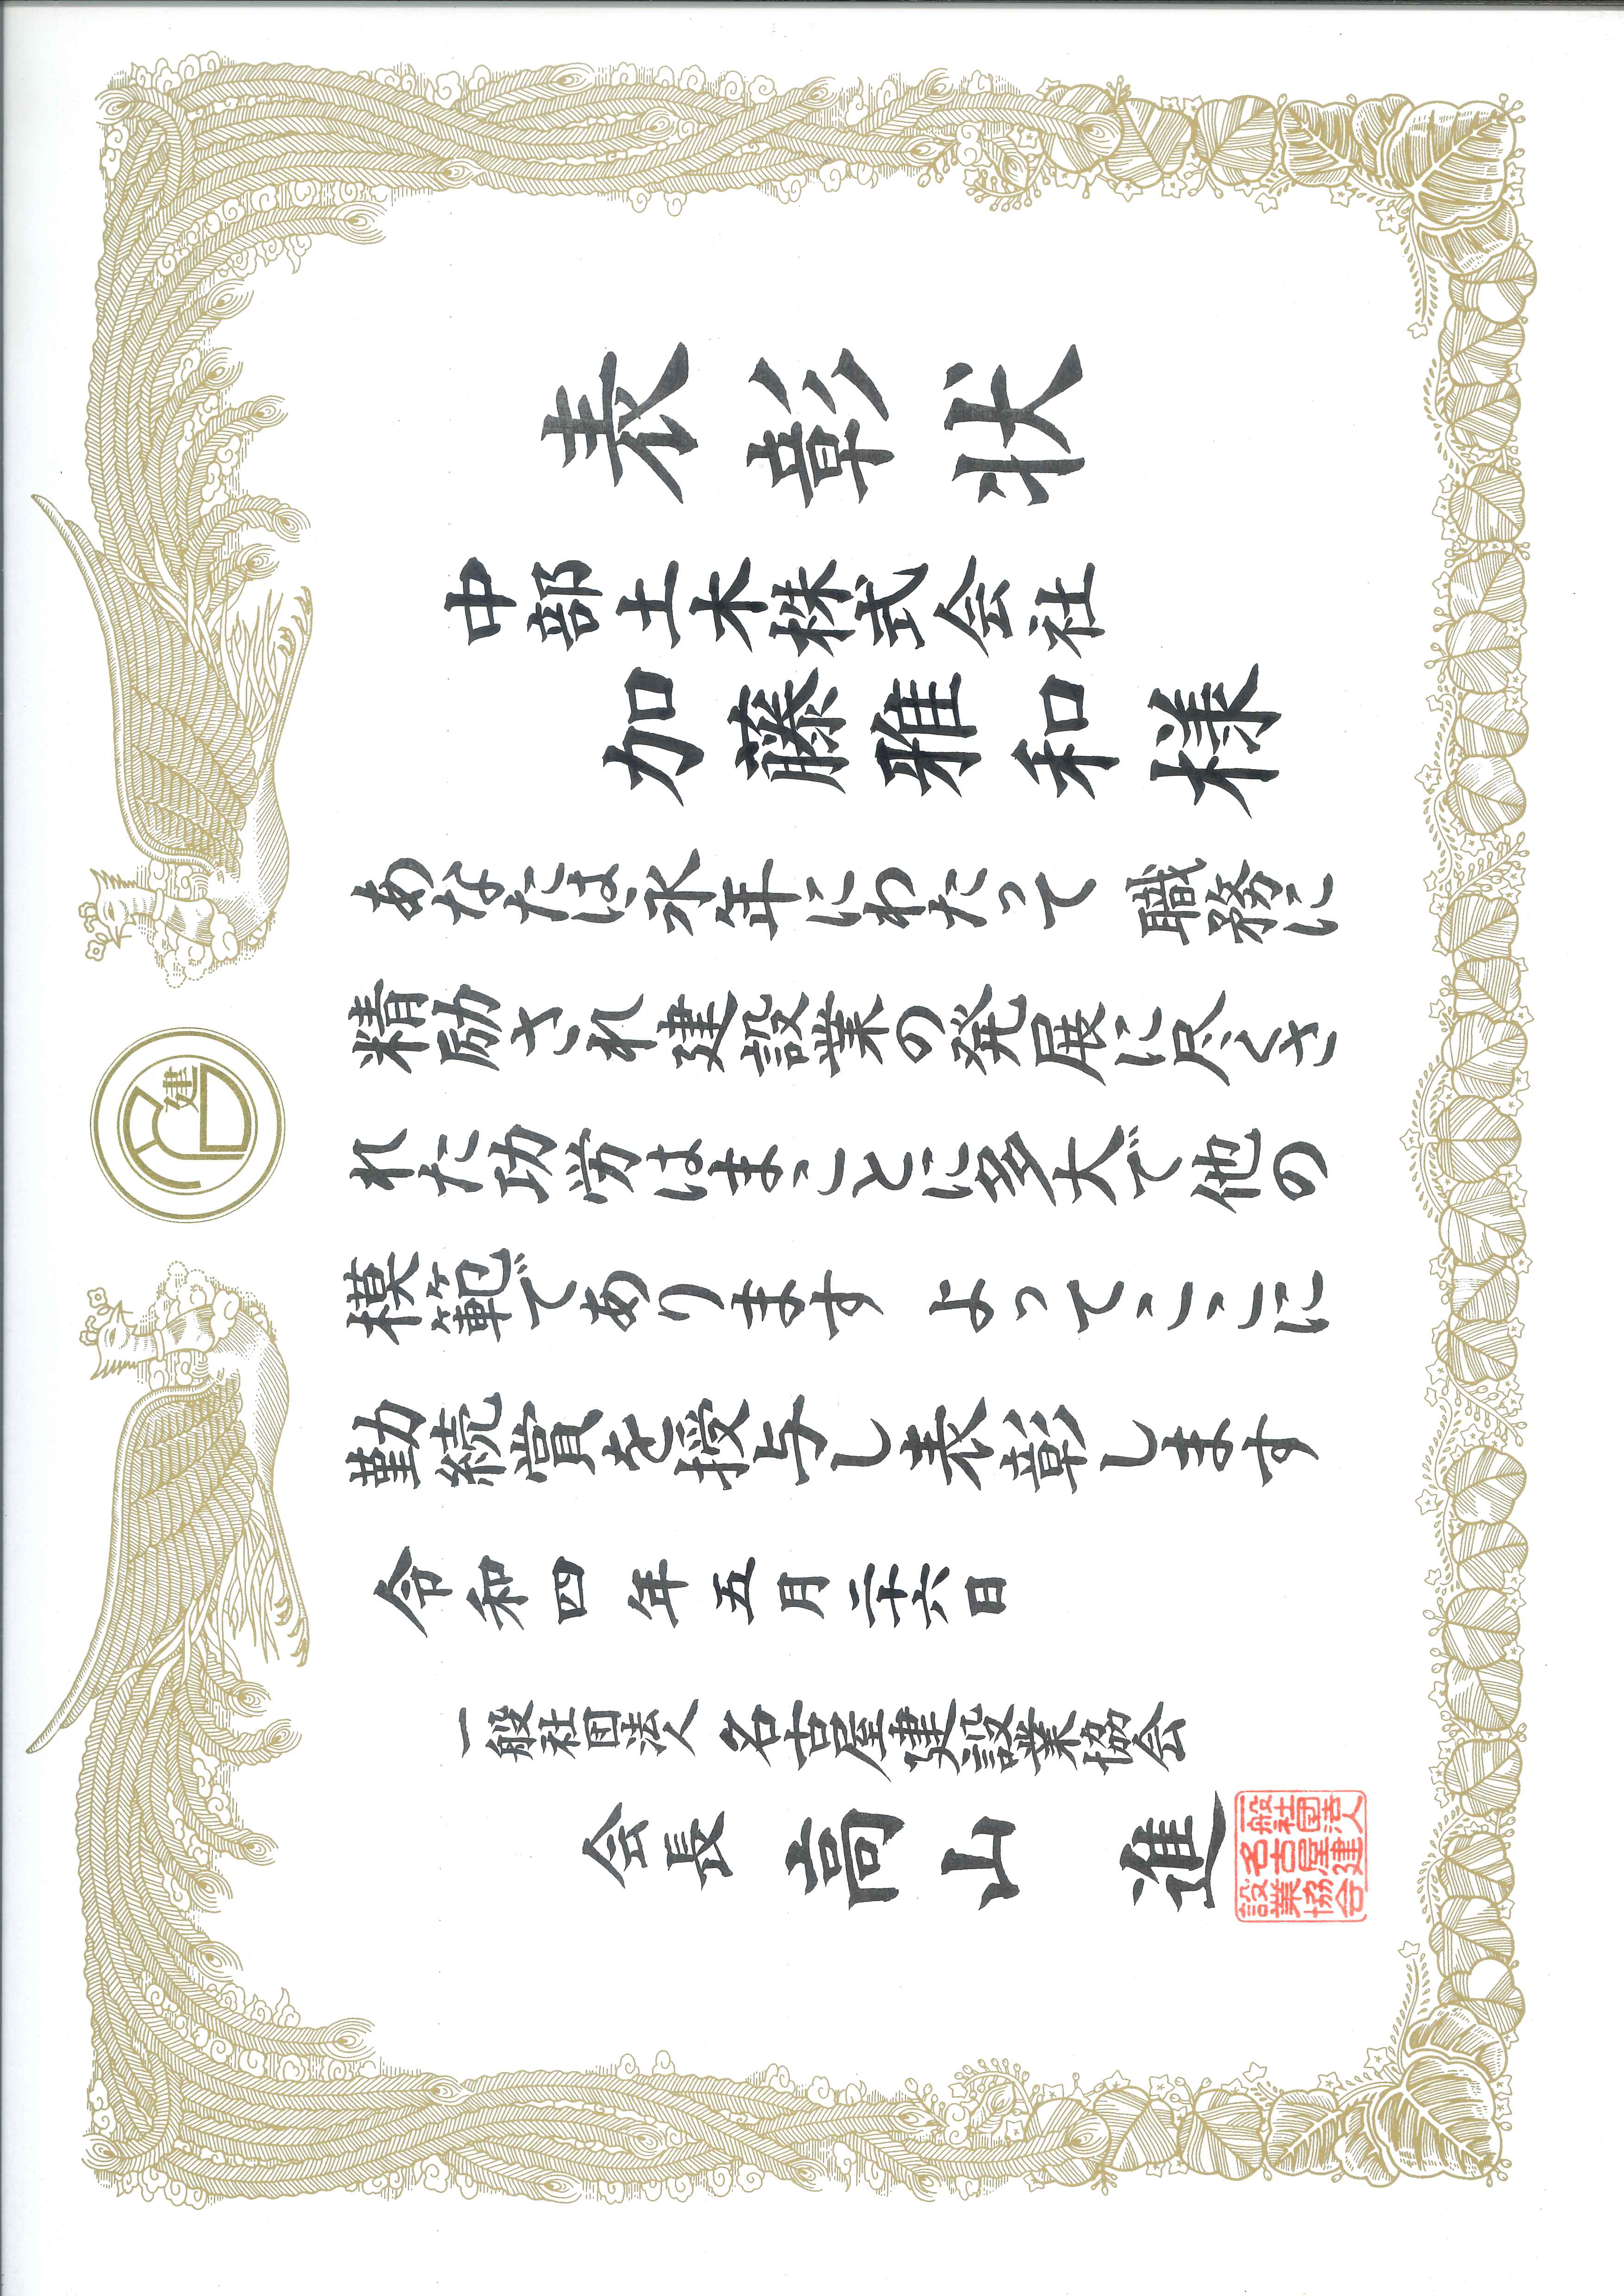 表彰状
中部土木株式会社
加藤雅和様
あなたは永年にわたって 職務に
精励され建設業の発展に尽くさ
れた功労はまことに多大で他の
模範であります よってここに
勤続賞を授与し表彰します
令和四年五月二十六日
一般社団法人 名古屋建設業協会
会長 高山 進
一般社団法人
名古屋建
設業協会
建